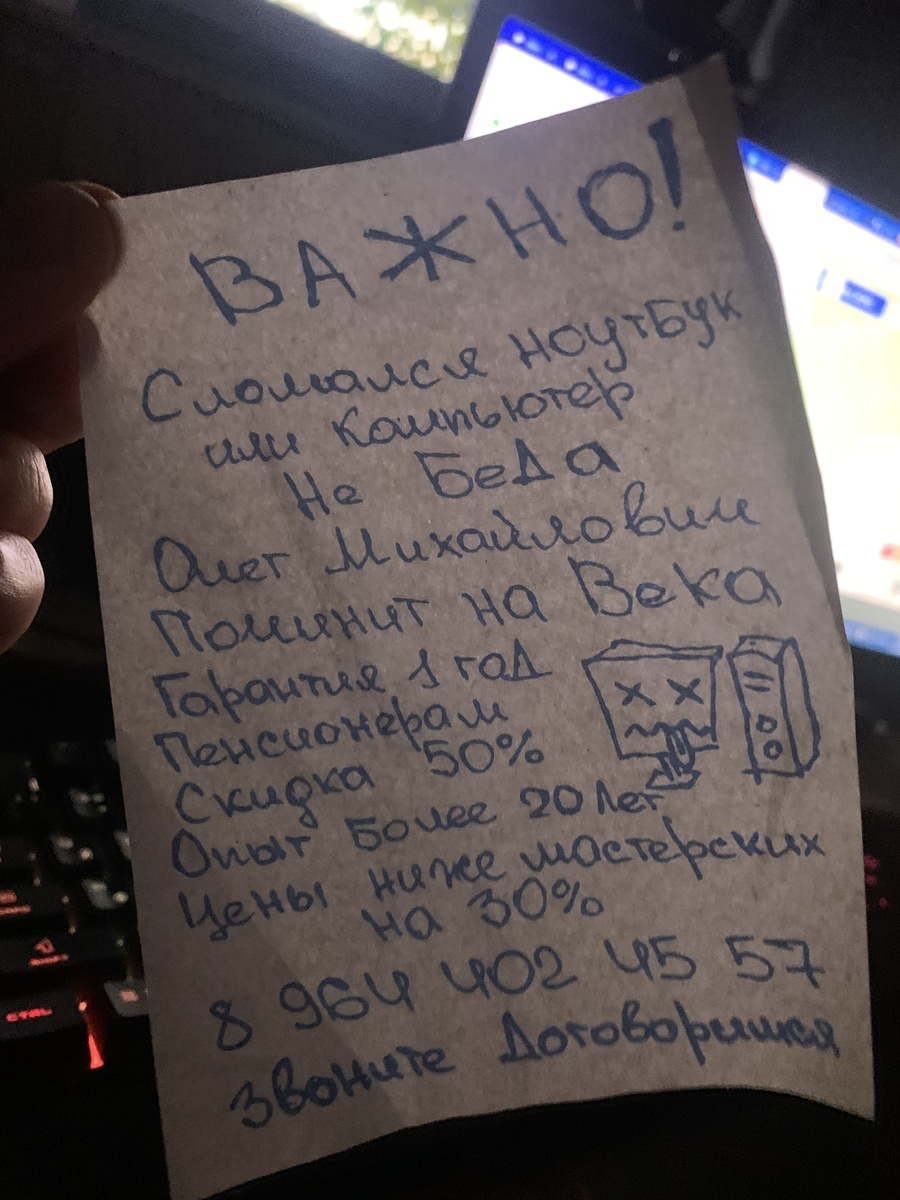 ВАЖНО!
Сломался ноутбук
или Компьютер
Не БеДа
Олег Михайлович
Починит на Века
Гарантия 1 гоД
Пенсионерам
Скидка 50%
Опыт Более 20 Лет
Цены ниже мастерских
на 30%
8 964 402 45 57
Звоните Договоримся
CTRL